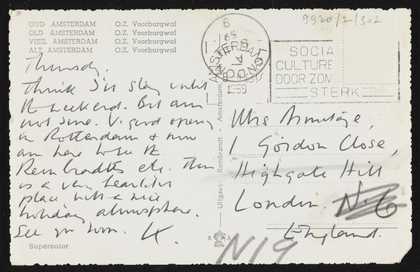 OUD AMSTERDAM O.Z. Voorburgwal
OLD AMSTERDAM O.Z. Voorburgwal
VIEIL AMSTERDAM O.Z. Voorburgwal
ALT AMSTERDAM O.Z. Voorburgwal
Thursday,
Think I'll stay until
the weekend. But am
not sure. V. good opening
in Rotterdam & now
am here to see the
Rembrandts etc. This
is a very beautiful
place with a nice
holiday atmosphere.
See you soon. K
Supercolor
Uitgave Rembrandt - Amsterdam
9920/2/302
AMSTERDAM
1959
SOCIA
CULTURE
DOOR ZON
STERK
Mrs Armitage,
1 Gordon Close,
Highgate Hill
London, N.6
England.
N19